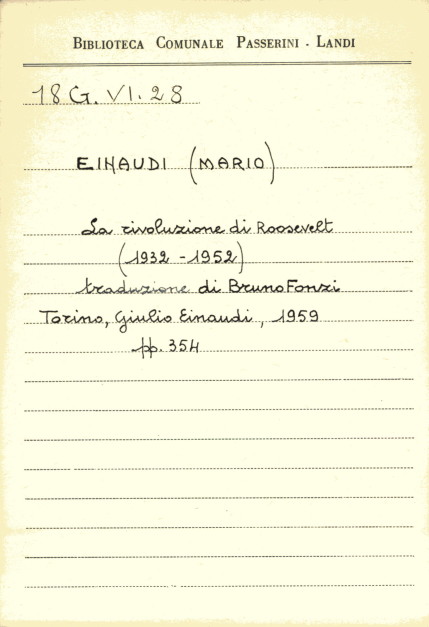 BIBLIOTECA COMUNALE PASSERINI - LANDI
18 G. VI. 28
EINAUDI (MARIO)
La rivoluzione di Roosevelt
(1932 - 1952)
traduzione di Bruno Fonzi
Torino, Giulio Einaudi, 1959
pp. 354